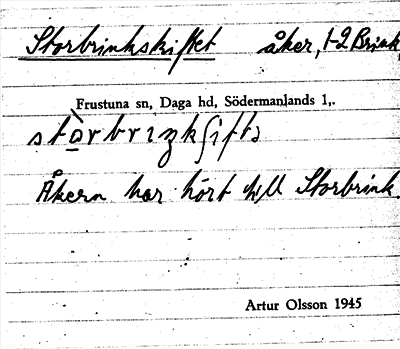 Storbrinkskiftet åker, t-2 Brink
Frustuna sn, Daga hd, Södermanlands l,.
Åkern har hört till Storbrink.
Artur Olsson 1945